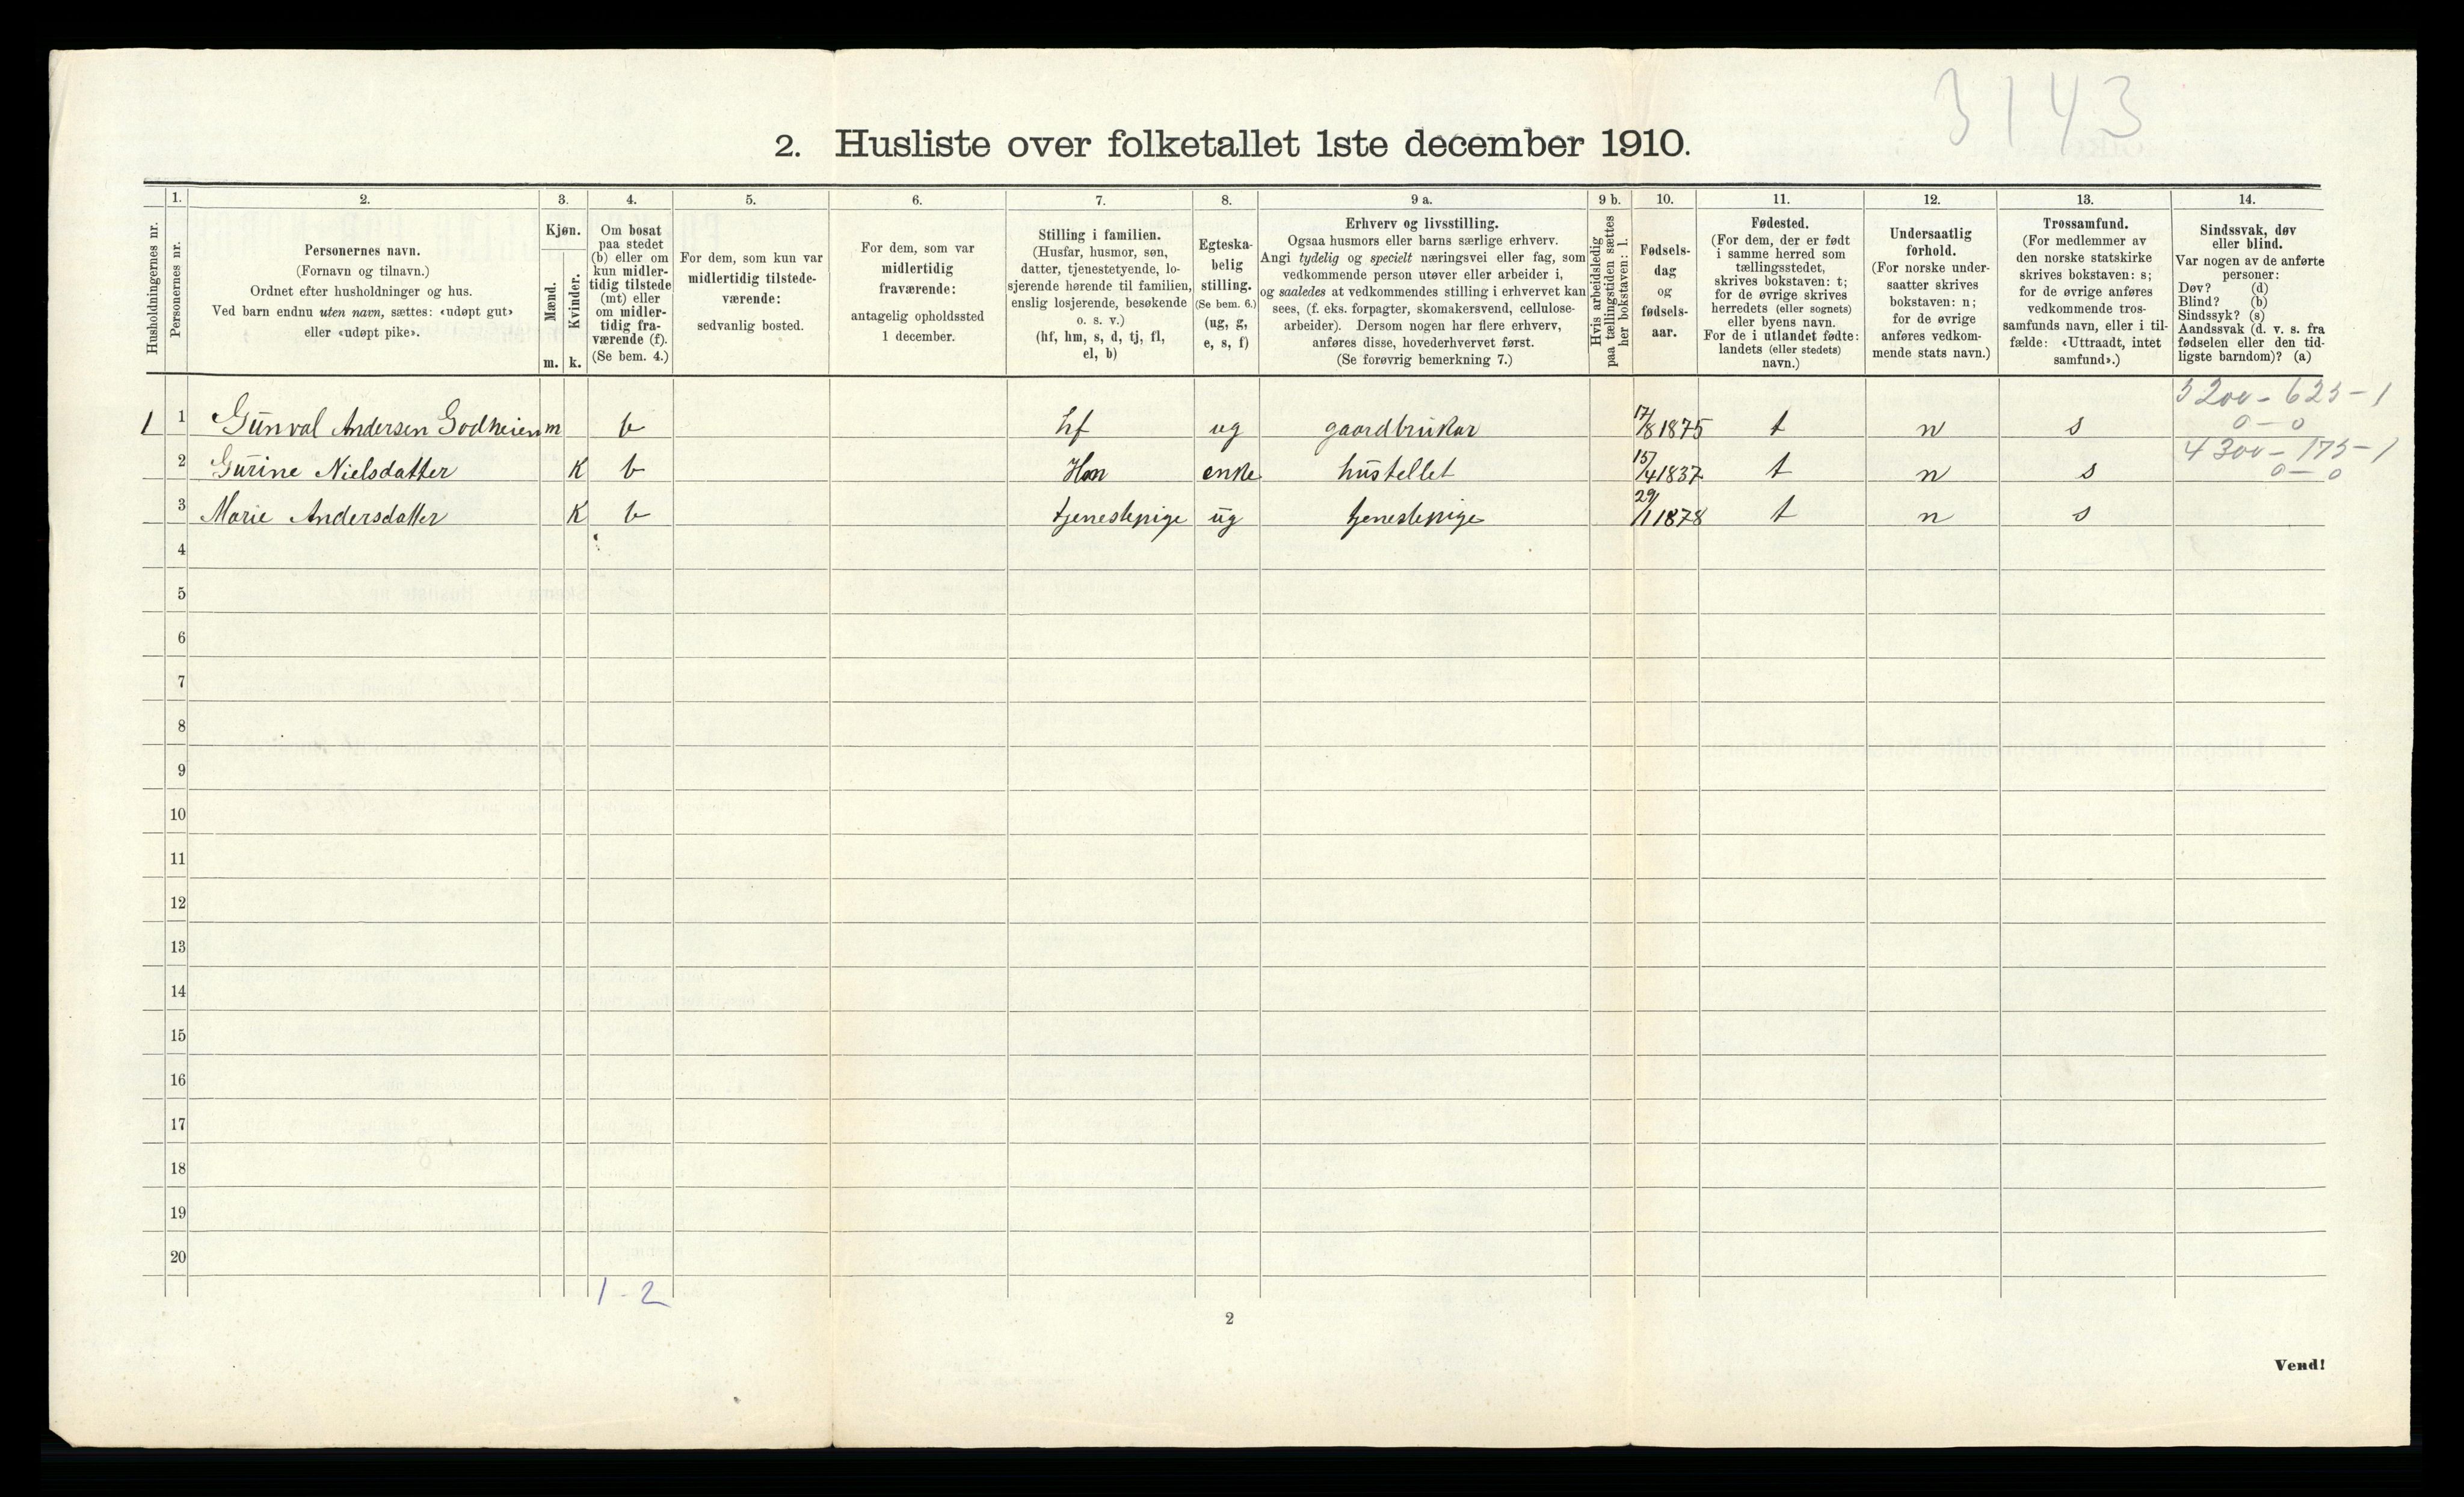 3143
2. Husliste over folketallet 1ste december 1910.
Husholdningernes nr.
1.
Personernes nr.
2.
Personernes navn.
(Fornavn og tilnavn.)
Ordnet efter husholdninger og hus.
Ved barn endnu uten navn, sættes: «udøpt gut»
eller «udøpt pike».
3.
Kjøn.
Mænd.
Kvinder.
m. k.
4.
Om bosat
paa stedet
(b) eller om
kun midler-
tidig tilstede
(mt) eller
om midler-
tidig fra-
værende (f).
(Se bem. 4.)
5.
For dem, som kun var
midlertidig tilstede-
værende:
sedvanlig bosted.
6.
For dem, som var
midlertidig
fraværende:
antagelig opholdssted
1 december.
7.
Stilling i familien.
(Husfar, husmor, søn,
datter, tjenestetyende, lo-
sjerende hørende til familien,
enslig losjerende, besøkende
o. s. v.)
(hf, hm, s, d, tj, fl,
el, b)
8.
Egteska-
belig
stilling.
(Se bem. 6.)
(ug, g,
e, s, f)
9 a.
Erhverv og livsstilling.
Ogsaa husmors eller barns særlige erhverv.
Angi tydelig og specielt næringsvei eller fag, som
vedkommende person utøver eller arbeider i,
og saaledes at vedkommendes stilling i erhvervet kan
sees, (f. eks. forpagter, skomakersvend, cellulose-
arbeider). Dersom nogen har flere erhverv,
anføres disse, hovederhvervet først.
(Se forøvrig bemerkning 7.)
9 b.
Hvis arbeidsledig
paa tællingstiden sættes
her bokstaven: l.
10.
Fødsels-
dag
og
fødsels-
aar.
11.
Fødested.
(For dem, der er født
i samme herred som
tællingsstedet,
skrives bokstaven: t;
for de øvrige skrives
herredets (eller sognets)
eller byens navn.
For de i utlandet fødte:
landets (eller stedets)
navn.)
12.
Undersaatlig
forhold.
(For norske under-
saatter skrives
bokstaven: n;
for de øvrige
anføres vedkom-
mende stats navn.)
13.
Trossamfund.
(For medlemmer av
den norske statskirke
skrives bokstaven: s;
for de øvrige anføres
vedkommende tros-
samfunds navn, eller i til-
fælde: «Uttraadt, intet
samfund».)
14.
Sindssvak, døv
eller blind.
Var nogen av de anførte
personer:
Døv? (d)
Blind? (b)
Sindssyk? (s)
Aandssvak (d. v. s. fra
fødselen eller den tid-
ligste barndom)? (a)
5200 - 625 - 1
0 - 0
1 1 Gunval Andersen Godheien m b hf ug gaardbruker 17/8 1875 t n s
4300 - 175 - 1
0 - 0
2 Gurine Nielsdatter K b Hm enke hustellet 15/4 1837 t n s
3 Marie Andersdatter K b tjenestepige ug tjenestepige 29/1 1878 t n s
4
5
6
7
8
9
10
11
12
13
14
15
16
17
18
19
20
1 - 2
2
Vend!